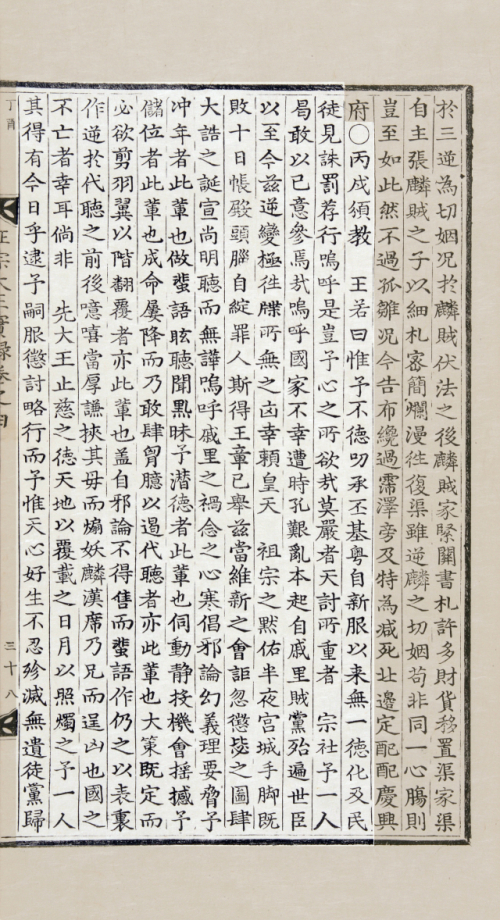 於三逆為切姻况於麟賊伏法之後麟賊家緊關書札許多財貨移置渠家渠
自主張麟賊之子以細札密簡爛漫往復渠雖逆麟之切姻苟非同一心膓則
豈至如此然不過孤雛况今告布纔過霈澤旁及特為减死北邊定配配慶興
府〇丙戌須教　王若曰惟予不德叨承丕基粤自新服以来無一德化及民
徒見誅罰荐行嗚呼是豈予心之所欲㢤莫嚴者天討所重者　宗社予一人
曷敢以已意參焉㢤嗚呼國家不幸遭時孔艱亂本起自戚里賊黨殆遍世臣
以至今兹逆變極徃牒所無之凶幸賴皇天　祖宗之黙佑半夜宮城手脚既
敗十日帳殿頭腦自綻罪人斯得王章已舉兹當維新之會詎忽懲毖之圖肆
大誥之誕宣尚明聽而無譁嗚呼戚里之禍念之心寒倡邪論幻義理要脅予
冲年者此軰也做蜚語眩聰聞㬌昧予潛德者此軰也伺動静投機會揺撼予
儲位者此軰也成命屢降而乃敢肆胷臆以遏代聽者亦此軰也大策既定而
必欲剪羽翼以階翻覆者亦此軰也盖自邪論不得售而蜚語作仍之以表裏
作逆於代聽之前後噫嘻當厚謙挾其母而煽妖麟漢席乃兄而逞凶也國之
不亡者幸耳倘非　先大王止慈之徳天地以覆載之日月以照燭之予一人
其得有今日乎逮予嗣服懲討略行而予惟天心好生不忍殄滅無遺徒黨歸
丁酉
正宗大王實錄卷之四
三十八